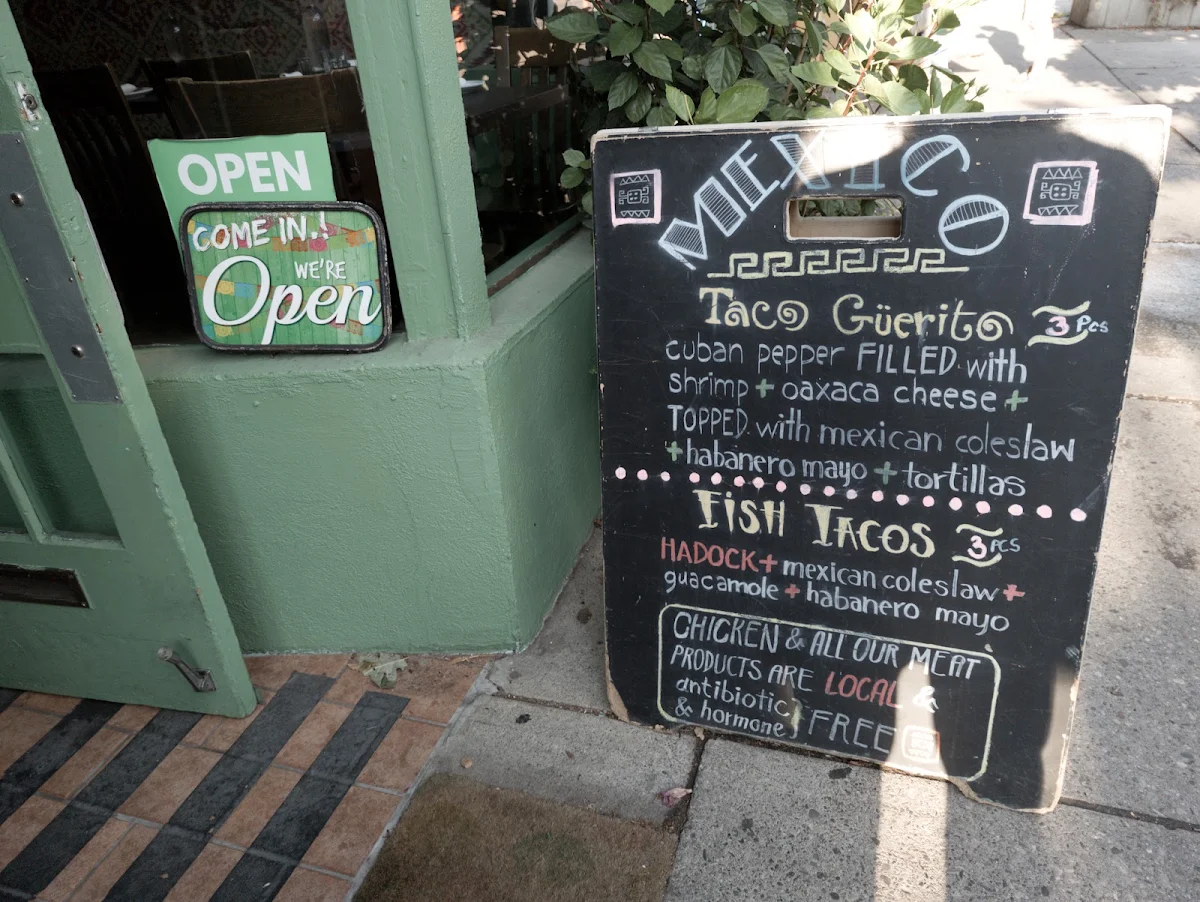 OPEN
COME IN..!
WE'RE
Open
MEXICO
Taco Güerito 3 Pcs
cuban pepper FILLED with
shrimp + oaxaca cheese +
TOPPED with mexican coleslaw
+ habanero mayo + tortillas
FISH TACOS 3 PCS
HADOCK + mexican coleslaw +
guacamole + habanero mayo
CHICKEN & ALL OUR MEAT
PRODUCTS ARE LOCAL &
antibiotic
& hormone } FREE